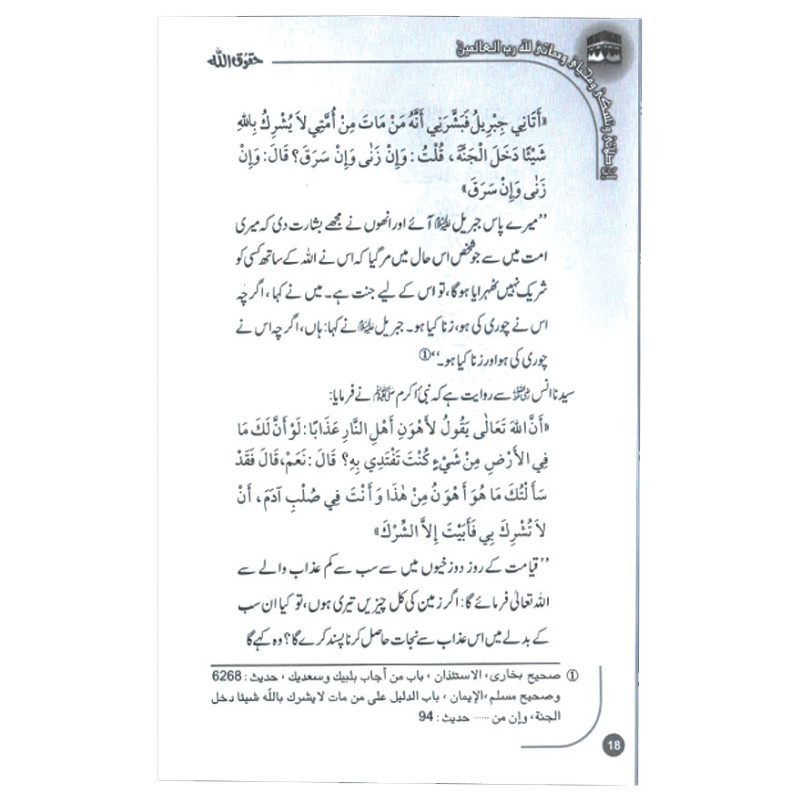 إن صلاتي ونسكي ومحياي ومماتي لله رب العالمين
حقوق اللہ
«أَتَانِي جِبْرِيلُ فَبَشَّرَنِي أَنَّهُ مَنْ مَاتَ مِنْ أُمَّتِي لاَ يُشْرِكُ بِاللهِ
شَيْئًا دَخَلَ الْجَنَّةَ، قُلْتُ: وَإِنْ زَنٰى وَإِنْ سَرَقَ؟ قَالَ: وَإِنْ
زَنٰى وَإِنْ سَرَقَ»
’’میرے پاس جبریل علیہ السلام آئے اور انھوں نے مجھے بشارت دی کہ میری
امت میں سے جو شخص اس حال میں مر گیا کہ اس نے اللہ کے ساتھ کسی کو
شریک نہیں ٹھہرایا ہوگا، تو اس کے لیے جنت ہے۔ میں نے کہا، اگرچہ
اس نے چوری کی ہو، زنا کیا ہو۔ جبریل علیہ السلام نے کہا: ہاں، اگرچہ اس نے
چوری کی ہو اور زنا کیا ہو۔‘‘①
سیدنا انس رضی اللہ عنہ سے روایت ہے کہ نبی اکرم ﷺ نے فرمایا:
«أَنَّ اللهَ تَعَالٰى يَقُولُ لأَهْوَنِ أَهْلِ النَّارِ عَذَابًا: لَوْ أَنَّ لَكَ مَا
فِي الأَرْضِ مِنْ شَيْءٍ كُنْتَ تَفْتَدِي بِهِ؟ قَالَ: نَعَمْ، قَالَ فَقَدْ
سَأَلْتُكَ مَا هُوَ أَهْوَنُ مِنْ هٰذَا وَأَنْتَ فِي صُلْبِ آدَمَ، أَنْ
لاَ تُشْرِكَ بِي فَأَبَيْتَ إِلاَّ الشِّرْكَ»
’’قیامت کے روز دوزخیوں میں سے سب سے کم عذاب والے سے
اللہ تعالیٰ فرمائے گا: اگر زمین کی کل چیزیں تیری ہوں، تو کیا ان سب
کے بدلے میں اس عذاب سے نجات حاصل کرنا پسند کرے گا؟ وہ کہے گا
① صحیح بخاری، الاستئذان، باب من أجاب بلبیك وسعدیك، حدیث: 6268
وصحیح مسلم، الإیمان، باب الدلیل علی من مات لا یشرك باللّٰه شیئا دخل
الجنة، وإن من ...... حدیث: 94
18